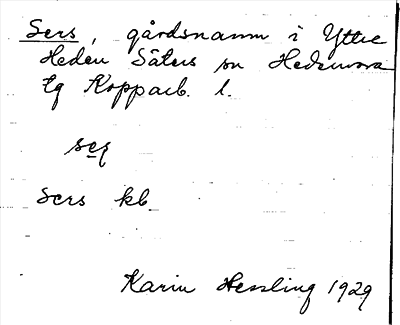 Sers, gårdsnamn i Yttre
Heden Säters sn Hedemora
tg Kopparb. l.
Sers kb
Karin Hessling 1929